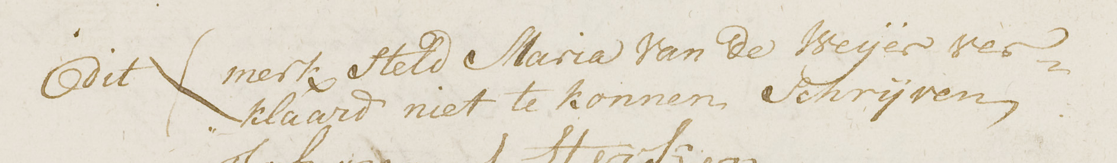 dit merk steld Maria van de Weijer ver=
klaard niet te konnen Schrijven,